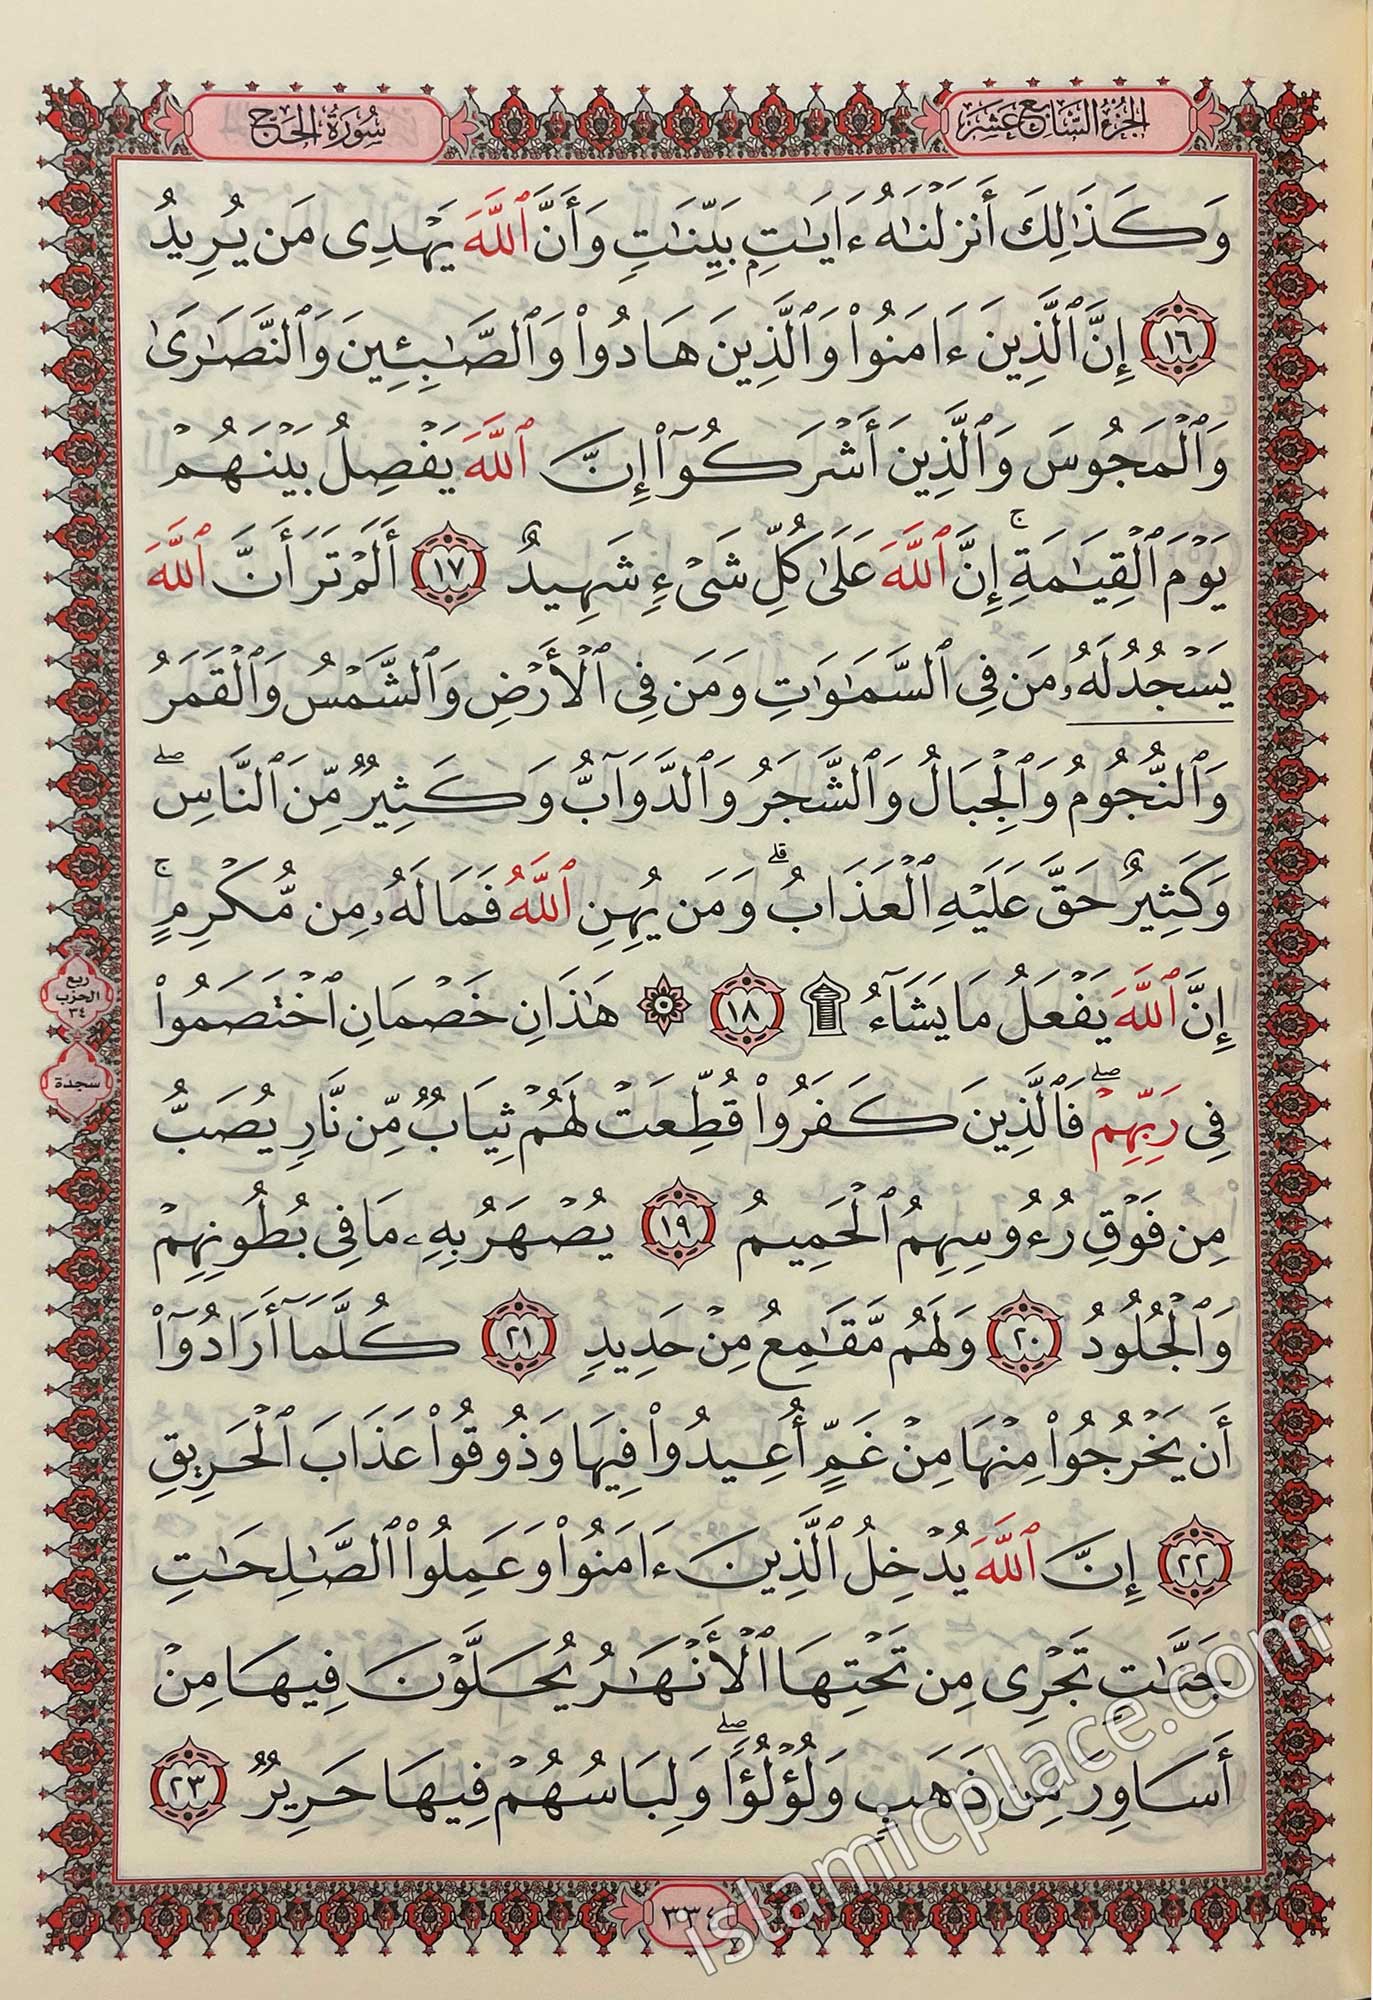 الجزء السابع عشر
سورة الحج
وَكَذَٰلِكَ أَنزَلْنَٰهُ ءَايَٰتٍۭ بَيِّنَٰتٍ وَأَنَّ ٱللَّهَ يَهْدِى مَن يُرِيدُ
١٦ إِنَّ ٱلَّذِينَ ءَامَنُوا۟ وَٱلَّذِينَ هَادُوا۟ وَٱلصَّٰبِـِٔينَ وَٱلنَّصَٰرَىٰ
وَٱلْمَجُوسَ وَٱلَّذِينَ أَشْرَكُوٓا۟ إِنَّ ٱللَّهَ يَفْصِلُ بَيْنَهُمْ
يَوْمَ ٱلْقِيَٰمَةِ ۚ إِنَّ ٱللَّهَ عَلَىٰ كُلِّ شَىْءٍ شَهِيدٌ ١٧ أَلَمْ تَرَ أَنَّ ٱللَّهَ
يَسْجُدُ لَهُۥ مَن فِى ٱلسَّمَٰوَٰتِ وَمَن فِى ٱلْأَرْضِ وَٱلشَّمْسُ وَٱلْقَمَرُ
وَٱلنُّجُومُ وَٱلْجِبَالُ وَٱلشَّجَرُ وَٱلدَّوَآبُّ وَكَثِيرٌ مِّنَ ٱلنَّاسِ ۖ
وَكَثِيرٌ حَقَّ عَلَيْهِ ٱلْعَذَابُ ۗ وَمَن يُهِنِ ٱللَّهُ فَمَا لَهُۥ مِن مُّكْرِمٍ ۚ
إِنَّ ٱللَّهَ يَفْعَلُ مَا يَشَآءُ ۩ ١٨ ۞ هَٰذَانِ خَصْمَانِ ٱخْتَصَمُوا۟
فِى رَبِّهِمْ ۖ فَٱلَّذِينَ كَفَرُوا۟ قُطِّعَتْ لَهُمْ ثِيَابٌ مِّن نَّارٍ يُصَبُّ
مِن فَوْقِ رُءُوسِهِمُ ٱلْحَمِيمُ ١٩ يُصْهَرُ بِهِۦ مَا فِى بُطُونِهِمْ
وَٱلْجُلُودُ ٢٠ وَلَهُم مَّقَٰمِعُ مِنْ حَدِيدٍ ٢١ كُلَّمَآ أَرَادُوٓا۟
أَن يَخْرُجُوا۟ مِنْهَا مِنْ غَمٍّ أُعِيدُوا۟ فِيهَا وَذُوقُوا۟ عَذَابَ ٱلْحَرِيقِ
٢٢ إِنَّ ٱللَّهَ يُدْخِلُ ٱلَّذِينَ ءَامَنُوا۟ وَعَمِلُوا۟ ٱلصَّٰلِحَٰتِ
جَنَّٰتٍ تَجْرِى مِن تَحْتِهَا ٱلْأَنْهَٰرُ يُحَلَّوْنَ فِيهَا مِنْ
أَسَاوِرَ مِن ذَهَبٍ وَلُؤْلُؤًا ۖ وَلِبَاسُهُمْ فِيهَا حَرِيرٌ ٢٣
ربع
الحزب
٣٤
سجدة
٣٣٤
islamicplace.com